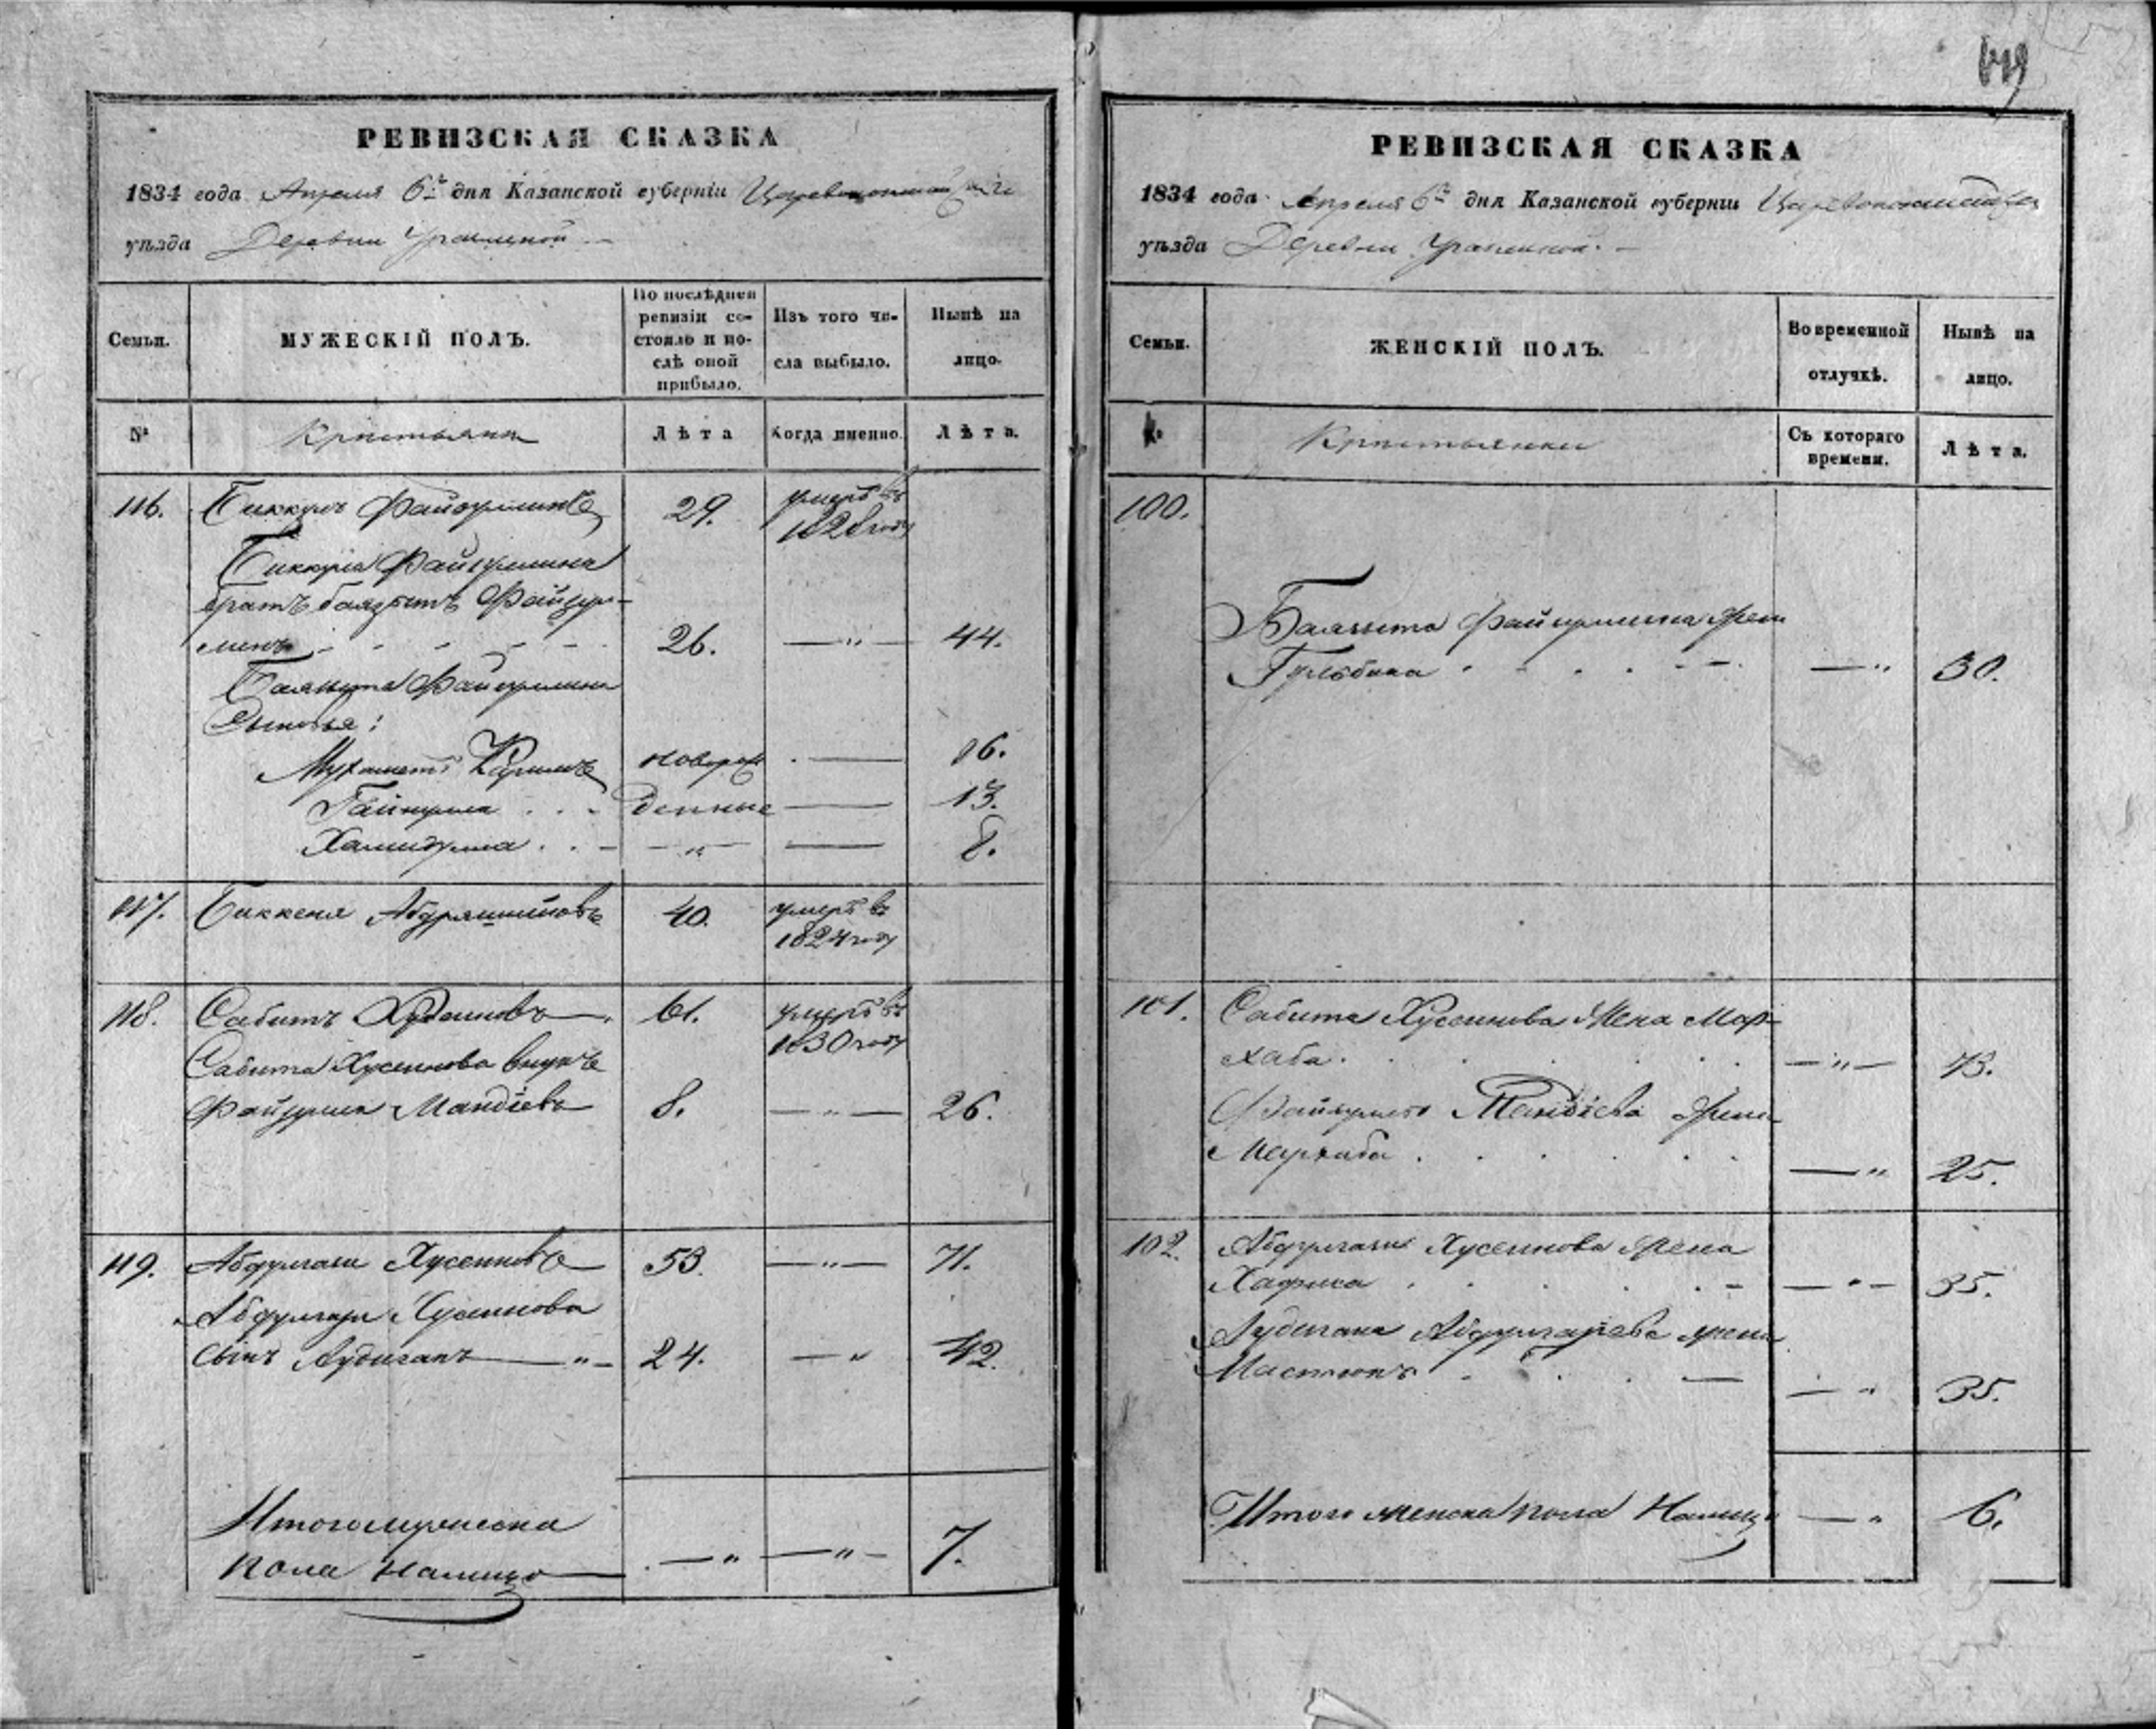 619
РЕВИЗСКАЯ СКАЗКА
1834 года Апреля 6го дня Казанской губерніи
уѣзда Деревни
Семьи.
МУЖЕСКІЙ ПОЛЪ.
По послѣдней ревизіи со-
стояло и по-
слѣ оной
прибыло.
Изъ того чи-
сла выбыло.
Нынѣ на
лицо.
№
Крестьяна
Лѣта
Когда именно.
Лѣта.
116. Биккулъ Файзуллинъ 29. умеръ въ
1828 году
Биккула Файзуллина
братъ баязитъ Файзул-
линъ 26. —"— 44.
Баязита Файзуллина
Сыновья:
Мухаметъ Каримъ новорож — 16.
Гайнулла денные — 13.
Хамидулла —"— — 8.
117. Биккеня 40. умеръ въ
1824 году
118. Сабитъ Хусеиновъ 61. умеръ въ
1830 году
Сабита Хусеинова внукъ
Файзулла Мандіевъ 8. —"— 26.
119. Абдулгази Хусеиновъ 53. —"— 71.
Абдулгази Хусеинова
сынъ Аудиганъ —"— 24. —" 42.
Итого мужеска
пола налицо —" —"— 7.
РЕВИЗСКАЯ СКАЗКА
1834 года Апреля 6го дня Казанской губерніи
уѣзда Деревни
Семьи.
ЖЕНСКІЙ ПОЛЪ.
Во временной
отлучкѣ.
Нынѣ на
лицо.
№
Крестьянки
Съ котораго
времени.
Лѣта.
100.
Баязита Файзуллина жена
Гульбика —" 30.
101. Сабита Хусеинова жена Мар-
хаба —"— 43.
Файзуллы Мандіева жена
Мархаба —" 25.
102. Абдулгази Хусеинова жена
—"— 35.
Аудигана Абдулгазіева жена
—" 35.
Итого женска пола Налицо —" 6.